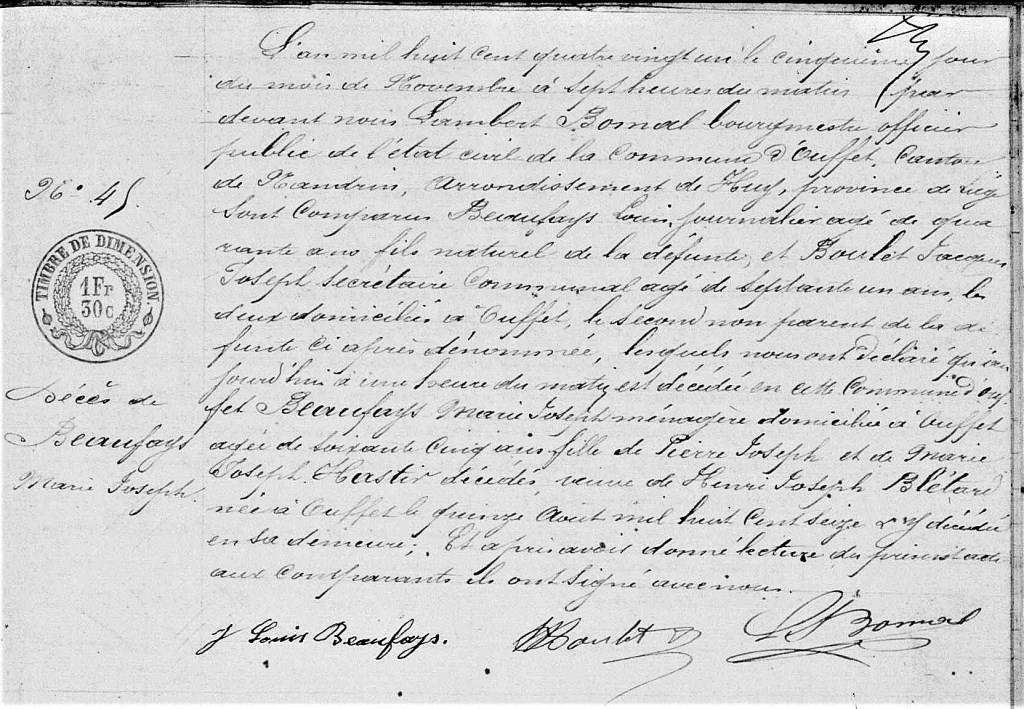 L'an mil huit cent quatre vingt un le cinquième jour
du mois de Novembre à sept heures du matin par
devant nous Lambert Bomal bourgmestre officier
public de l'état civil de la Commune d'Ouffet, Canton
de Nandrin, Arrondissement de Huy, province de Liége
Sont Comparus Beaufays Louis, journalier agé de qua
rante ans fils naturel de la défunte, et Boulet Jacques
Joseph secrétaire Communal agé de septante un ans, les
deux domiciliés à Ouffet, le second non parent de la dé
funte ci après dénommée, lesquels nous ont déclaré qu'au
jourd'hui à une heure du matin est décédée en cette Commune d'Ouf
fet Beaufays Marie Joseph ménagère domiciliée à Ouffet
agée de soixante cinq ans fille de Pierre Joseph et de Marie
Joseph Hastir décédés, veuve de Henri Joseph Blétard
née à Ouffet le quinze Aout mil huit cent seize & y décédée
en sa demeure; Et après avoir donné lecture du présent acte
aux comparants ils ont signé avec nous.
J Louis Beaufays. Boulet L Bomal
No 45.
TIMBRE DE DIMENSION.
1 Fr
30 C
Décès de
Beaufays
Marie Joseph.